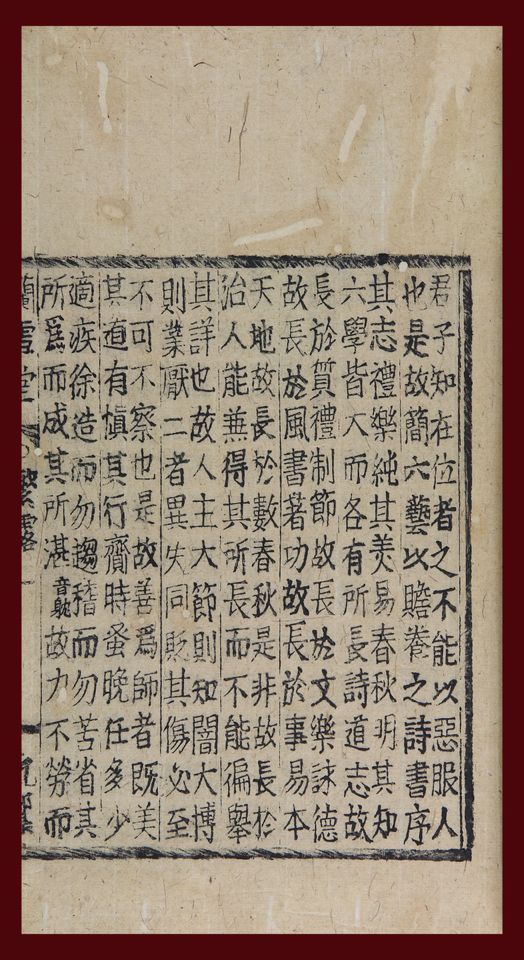 君子知在位者之不能以惡服人
也是故簡六藝以贍養之詩書序
其志禮樂純其羙易春秋明其知
六學皆大而各有所長詩道志故
長於質禮制節故長於文樂詠德
故長於風書著功故長於事易本
天地故長於數春秋是非故長於
治人能兼得其所長而不能徧舉
其詳也故人主大節則知闇大博
則業厭二者異失同貶其傷必至
不可不察也是故善爲師者既美
其道有慎其行齎時蚤晚任多少
適疾徐造而勿趨稽而勿苦省其
所爲而成其所湛音躭故力不勞而
蘭雪堂 繁露一